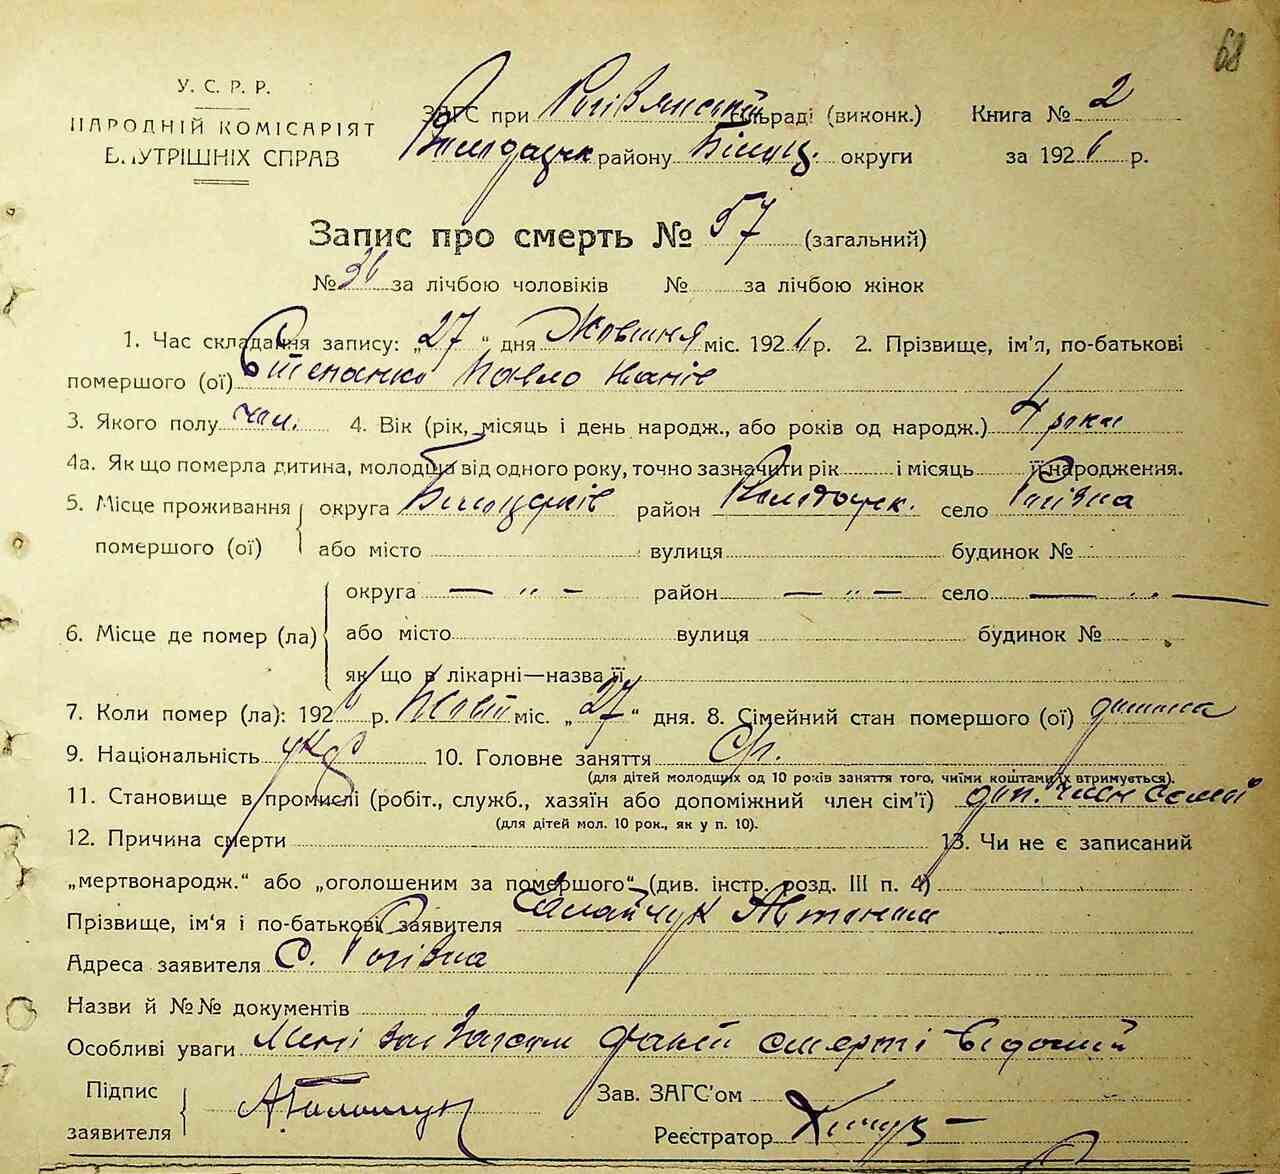 68
У. С. Р. Р.
НАРОДНІЙ КОМІСАРІЯТ
ВНУТРІШНІХ СПРАВ
ЗАГС при Рогівянській сільраді (виконк.) Книга № 2
району Білоц. округи за 1926 р.
Запис про смерть № 57 (загальний)
№ 36 за лічбою чоловіків № за лічбою жінок
1. Час складання запису: „27“ дня Жовтня міс. 1926 р. 2. Прізвище, ім’я, по-батькові
помершого (ої) Степанко Павло
3. Якого полу чол. 4. Вік (рік, місяць і день народж., або років од народж.) 4 роки
4а. Як що померла дитина, молодша від одного року, точно зазначити рік і місяць її народження.
5. Місце проживання округа Білоцерків район Володарк. село Рогівка
помершого (ої) або місто вулиця будинок №
округа — „ — район — „ — село — „ —
6. Місце де помер (ла) або місто вулиця будинок №
як що в лікарні—назва її
7. Коли помер (ла): 1926 р. Жовт міс. „27“ дня. 8. Сімейний стан помершого (ої) дитина
9. Національність укр 10. Головне заняття
(для дітей молодщих од 10 років заняття того, чиїми коштами їх втримується).
11. Становище в промислі (робіт., служб., хазяїн або допоміжний член сім’ї) доп. член семьї
(для дітей мол. 10 рок., як у п. 10).
12. Причина смерти 13. Чи не є записаний
„мертвонародж.“ або „оголошеним за помершого“ (див. інстр. розд. III п. 4)
Прізвище, ім’я і по-батькові заявителя
Адреса заявителя С. Рогівка
Назви й №№ документів
Особливі уваги Мені Зав Загсом факт смерті відомий
Підпис Зав. ЗАГС’ом
заявителя Реєстратор